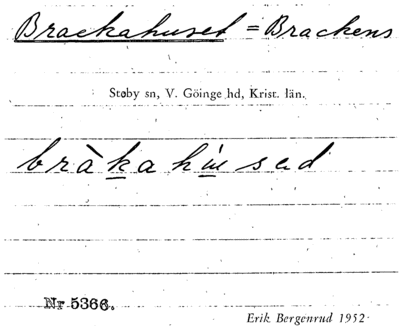 Brackahuset = Brackens
Stoby sn, V. Göinge hd, Krist. län.
Nr 5366.
Erik Bergenrud 1952